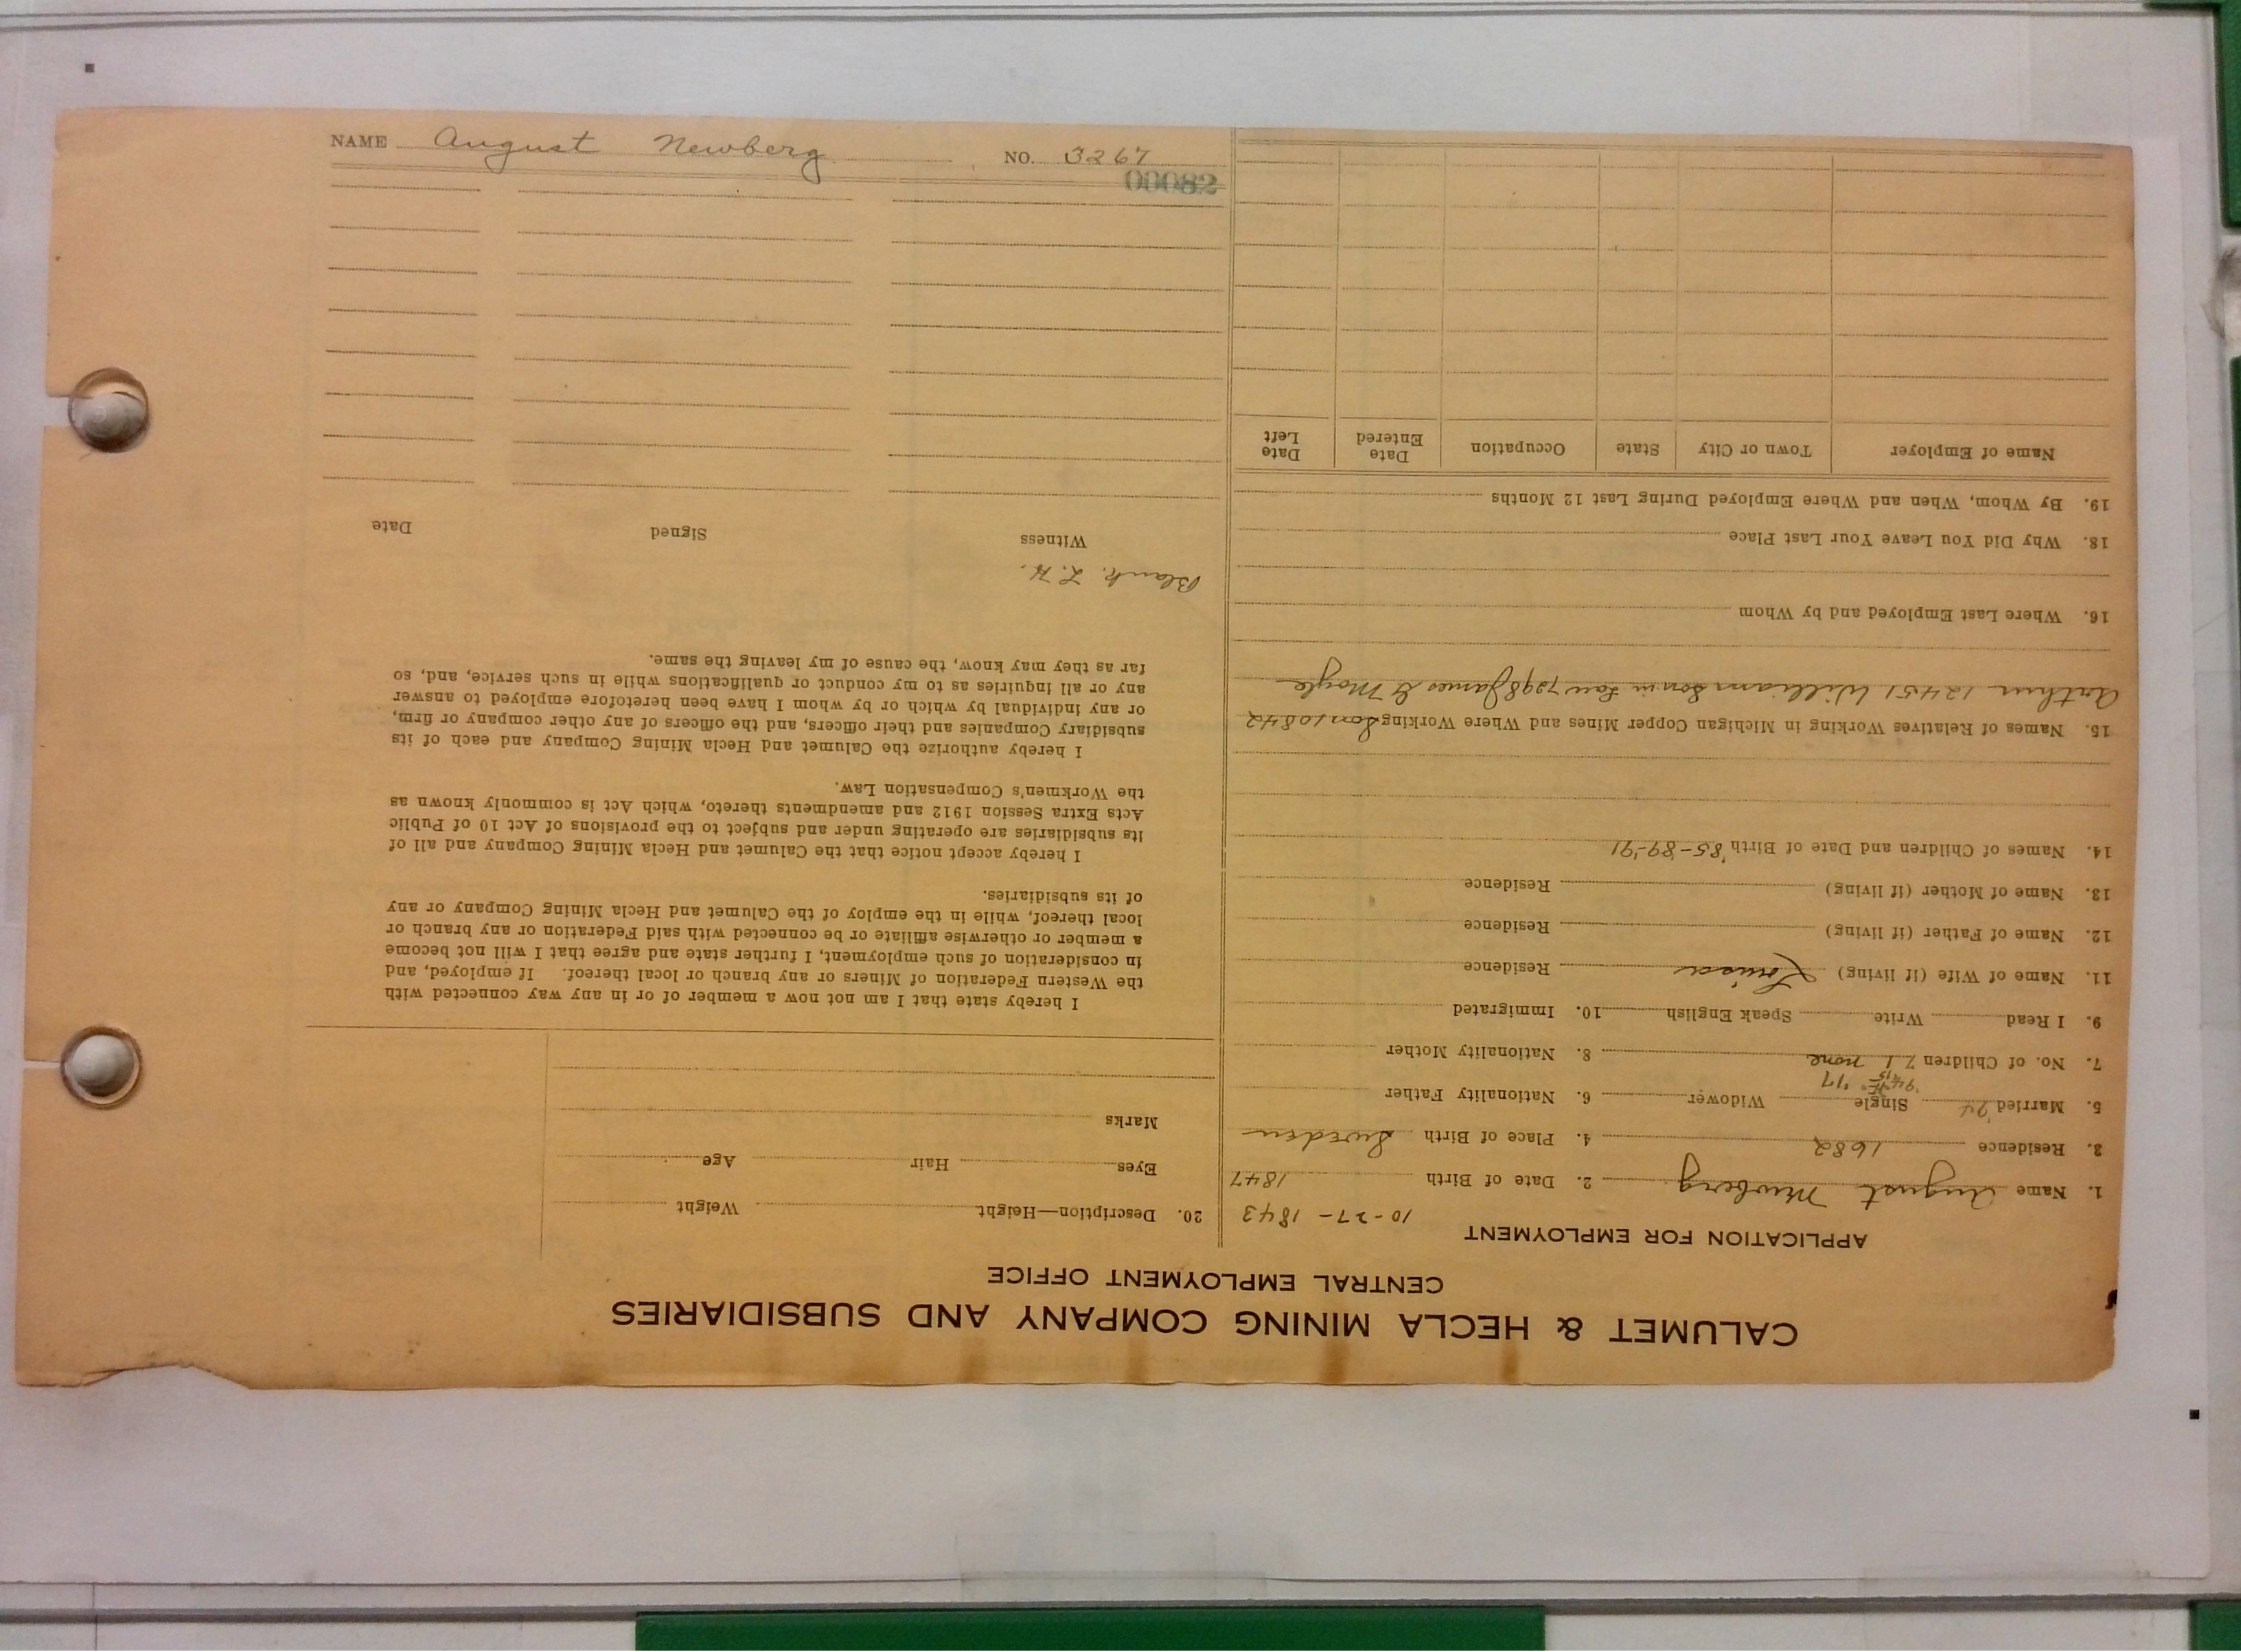 CALUMET & HECLA MINING COMPANY AND SUBSIDIARIES
CENTRAL EMPLOYMENT OFFICE
APPLICATION FOR EMPLOYMENT
10-27-1843
1. Name August Newberg 2. Date of Birth 1847
3. Residence 1682 4. Place of Birth Sweden
5. Married '94 Single Widower 6. Nationality Father
'94 '15 '17
7. No. of Children 7 1 none 8. Nationality Mother
9. I Read Write Speak English 10. Immigrated
11. Name of Wife (if living) Louisa Residence
12. Name of Father (if living) Residence
13. Name of Mother (if living) Residence
14. Names of Children and Date of Birth '85-'89-'91
15. Names of Relatives Working in Michigan Copper Mines and Where Working Son 10842
Arthur 12451 William Son in Law 7298 James G Moyle
16. Where Last Employed and by Whom
18. Why Did You Leave Your Last Place
19. By Whom, When and Where Employed During Last 12 Months
Name of Employer Town or City State Occupation Date Entered Date Left
20. Description—Height Weight
Eyes Hair Age
Marks
I hereby state that I am not now a member of or in any way connected with
the Western Federation of Miners or any branch or local thereof. If employed, and
in consideration of such employment, I further state and agree that I will not become
a member or otherwise affiliate or be connected with said Federation or any branch or
local thereof, while in the employ of the Calumet and Hecla Mining Company or any
of its subsidiaries.
I hereby accept notice that the Calumet and Hecla Mining Company and all of
its subsidiaries are operating under and subject to the provisions of Act 10 of Public
Acts Extra Session 1912 and amendments thereto, which Act is commonly known as
the Workmen's Compensation Law.
I hereby authorize the Calumet and Hecla Mining Company and each of its
subsidiary Companies and their officers, and the officers of any other company or firm,
or any individual by which or by whom I have been heretofore employed to answer
any or all inquiries as to my conduct or qualifications while in such service, and, so
far as they may know, the cause of my leaving the same.
Blank. L.H.
Witness Signed Date
NAME August Newberg NO. 3267
00082